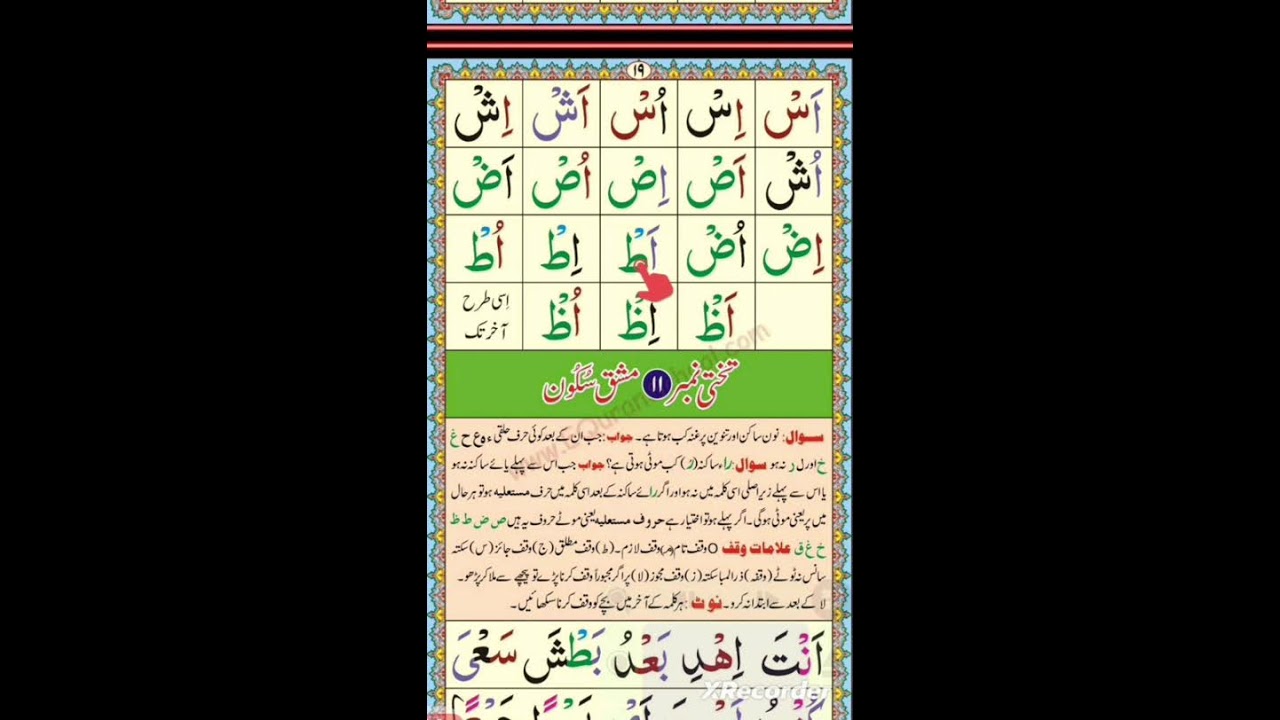 ١٩
اَسْ اِسْ اُسْ اَشْ اِشْ
اُشْ اَصْ اِصْ اُصْ اَضْ
اِضْ اُضْ اَطْ اِطْ اُطْ
اَظْ اِظْ اُظْ اِسی طرح آخر تک
تختی نمبر ۱۱ مشق سُکُون
سوال: نون ساکن اور تنوین پر غنہ کب ہوتا ہے۔ جواب: جب ان کے بعد کوئی حرف حلقی ء ہ ع ح غ
خ اور ل ر نہ ہو سوال: راء ساکنہ (رْ) کب موٹی ہوتی ہے؟ جواب جب اس سے پہلے یائے ساکنہ نہ ہو
یا اس سے پہلے زیر اصلی اسی کلمہ میں نہ ہو اور اگر رائے ساکنہ کے بعد اسی کلمہ میں حرف مستعلیہ ہو تو ہر حال
میں پر یعنی موٹی ہوگی۔ اگر پہلے ہو تو اختیار ہے حروف مستعلیہ یعنی موٹے حروف یہ ہیں ص ض ط ظ
خ غ ق علامات وقف O وقف تام (م) وقف لازم۔ (ط) وقف مطلق (ج) وقف جائز (س) سکتہ
سانس نہ ٹوٹے (وقفہ) ذرا لمبا سکتہ (ز) وقف مجوز (لا) پر اگر مجبوراً وقف کرنا پڑے تو پیچھے سے ملا کر پڑھو۔
لا کے بعد سے ابتدا نہ کرو۔ نوٹ: ہر کلمہ کے آخر میں بچے کو وقف کرنا سکھائیں۔
اَنْتَ اِهْدِ بَعْدُ بَطْشَ سَعْیَ
XRecorder